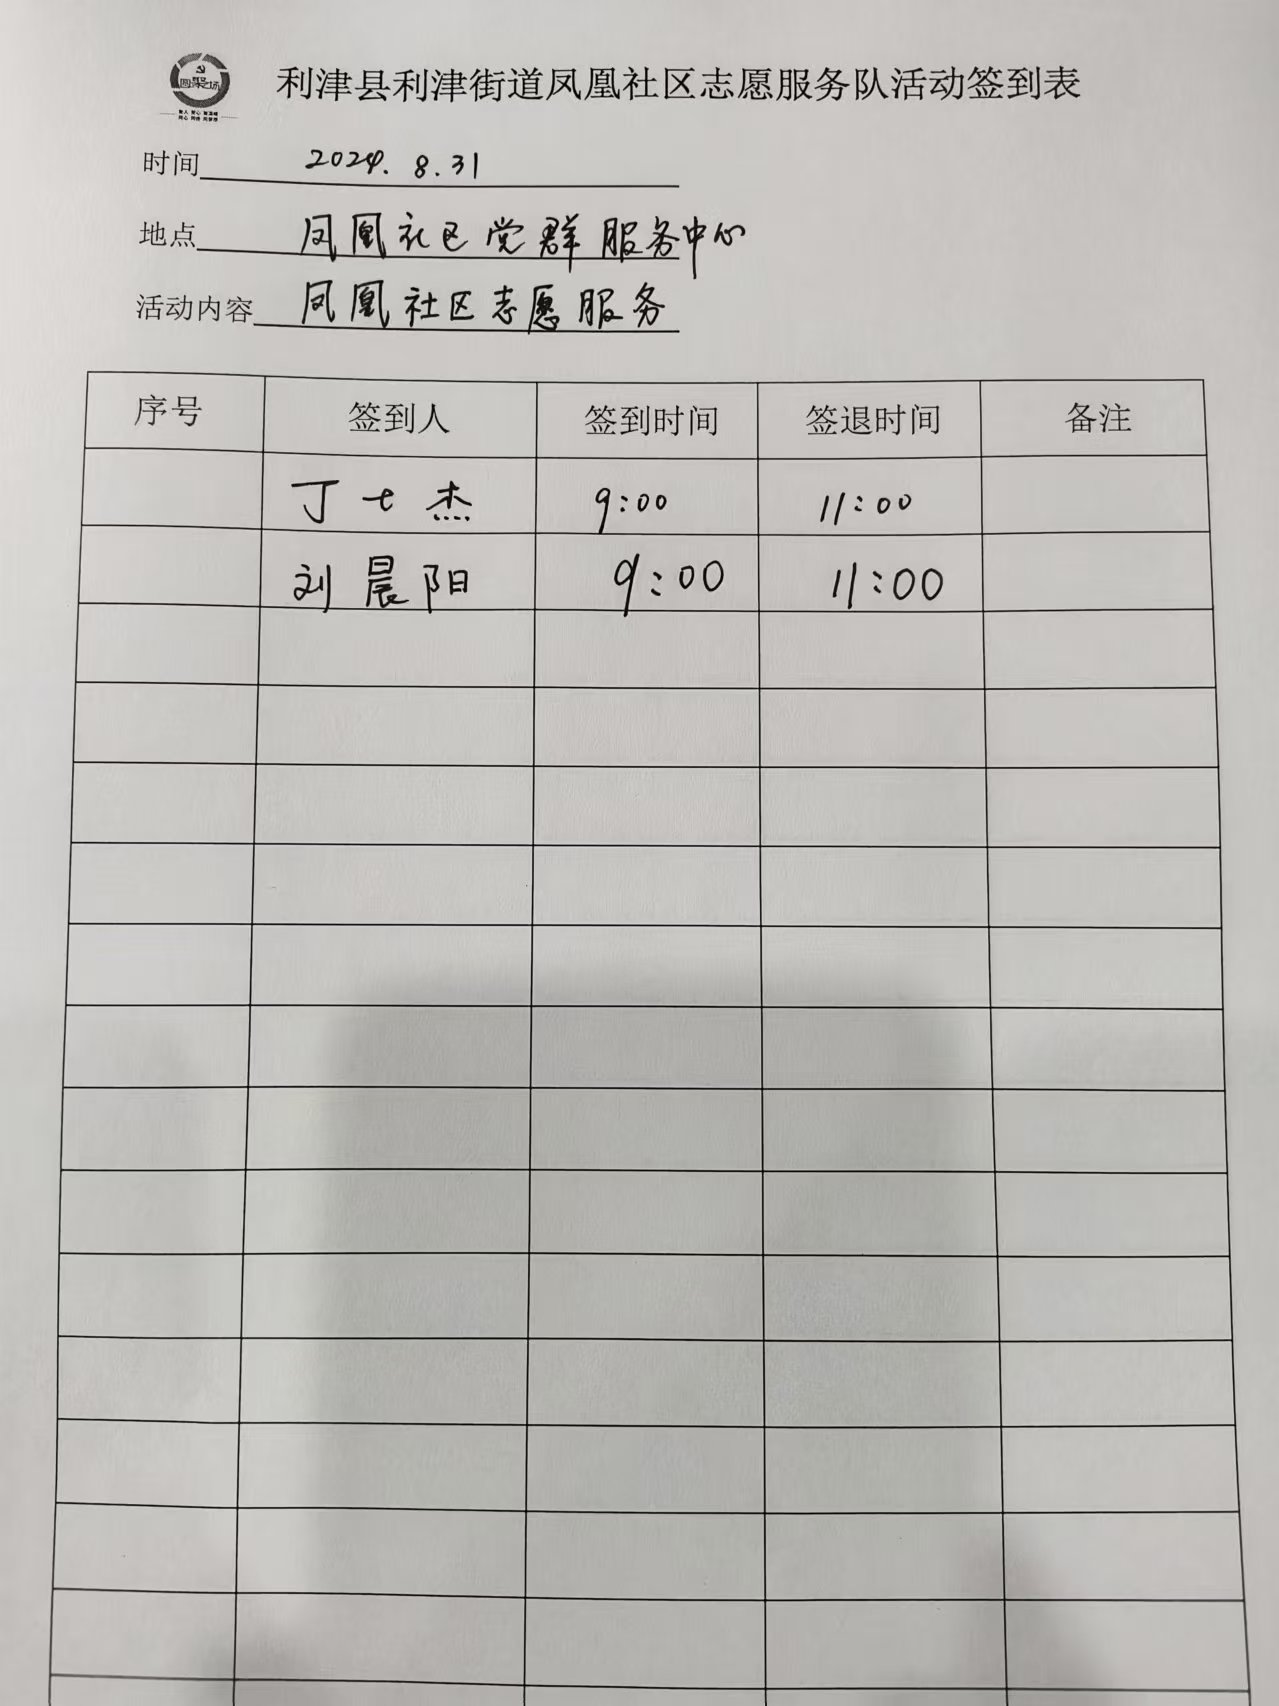 圆梦之场
利津县利津街道凤凰社区志愿服务队活动签到表
时间 2024.8.31
地点 凤凰社区党群服务中心
活动内容 凤凰社区志愿服务
序号 签到人 签到时间 签退时间 备注
丁七杰 9:00 11:00
刘晨阳 9:00 11:00